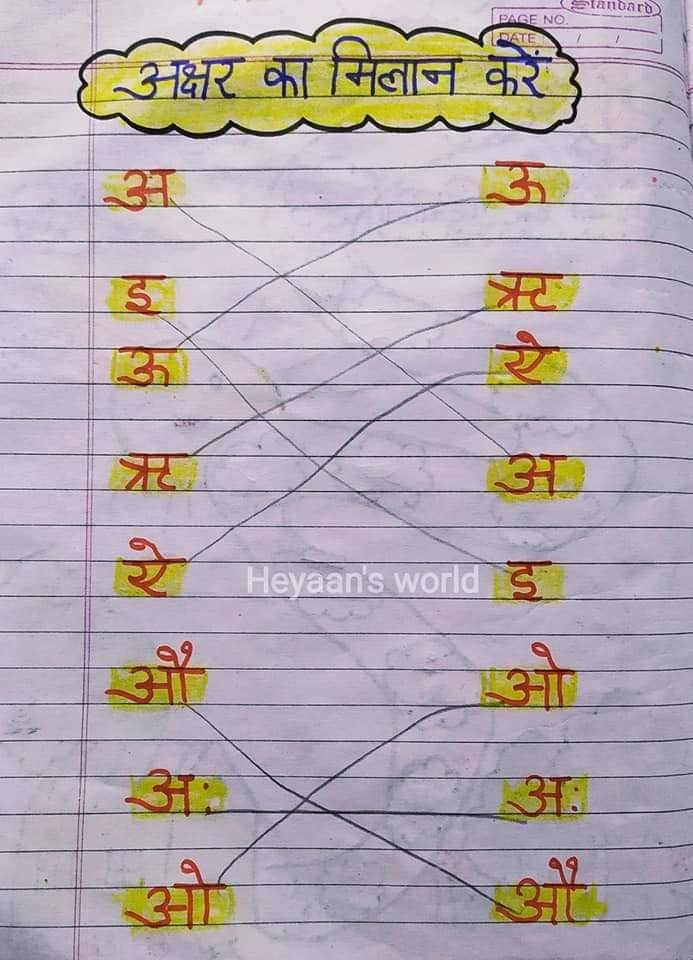 Standard
PAGE NO.
DATE / /
अक्षर का मिलान करें
अ ऊ
इ ऋ
ऊ ऐ
ऋ अ
ऐ इ
Heyaan's world
औ ओ
अः अः
ओ औ